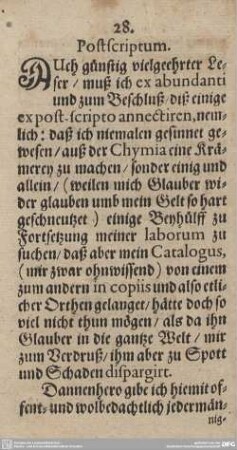 28.
Postscriptum.
AUch günstig vielgeehrter Le-
ser / muß ich ex abundanti
und zum Beschluß / diß einige
ex post-scripto annectiren, nem-
lich: daß ich niemalen gesinnet ge-
wesen / auß der Chymia eine Krä-
merey zu machen / sonder einig und
allein / (weilen mich Glauber wi-
der glauben umb mein Gelt so hart
geschneutzet) einige Beyhülff zu
Fortsetzung meiner laborum zu
suchen / daß aber mein Catalogus,
(mir zwar ohnwissend) von einem
zum andern in copiis und also etli-
cher Orthen gelanget / hätte doch so
viel nicht thun mögen / als da ihn
Glauber in die gantze Welt / mir
zum Verdruß / ihm aber zu Spott
und Schaden dispargirt.
Dannenhero gibe ich hiemit of-
fent- und wolbedachtlich jedermän-
nig-